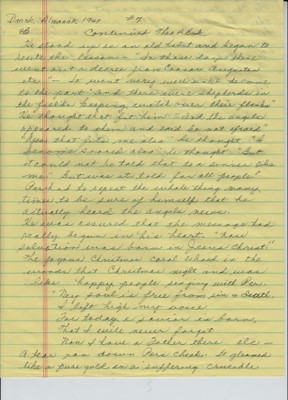 Dansk Almanak 1949 #7
to Continued The Book
He stood up
an old
and began to
recite the
"In those days there
went out a decree from Caesar Augustus
etc." - It went very well until he came
to the part "and there were shepherds in
the fields keeping watch over their flocks"
He thought that fit him "and the angels
appeared to them and said be not afraid"
he thought "I
"But
it could not be told that to a sinner like
me" But was it told for all people?
Per had to repeat the whole thing many
times to be sure of himself that he
actually heard the angels news.
He was assured that the message had
really begun in his heart. "Your
salvation was born in Jesus Christ."
The joyous Christmas carol
in the
that Christmas night and was
like happy people singing with Per.
"My soul is free from sin & death,
I lift high my voice
For today a savior is born,
That I will never forget
Now I have a Father there etc -
A tear ran down Pers cheek. It gleamed
like a pure gold in a suffering crucible